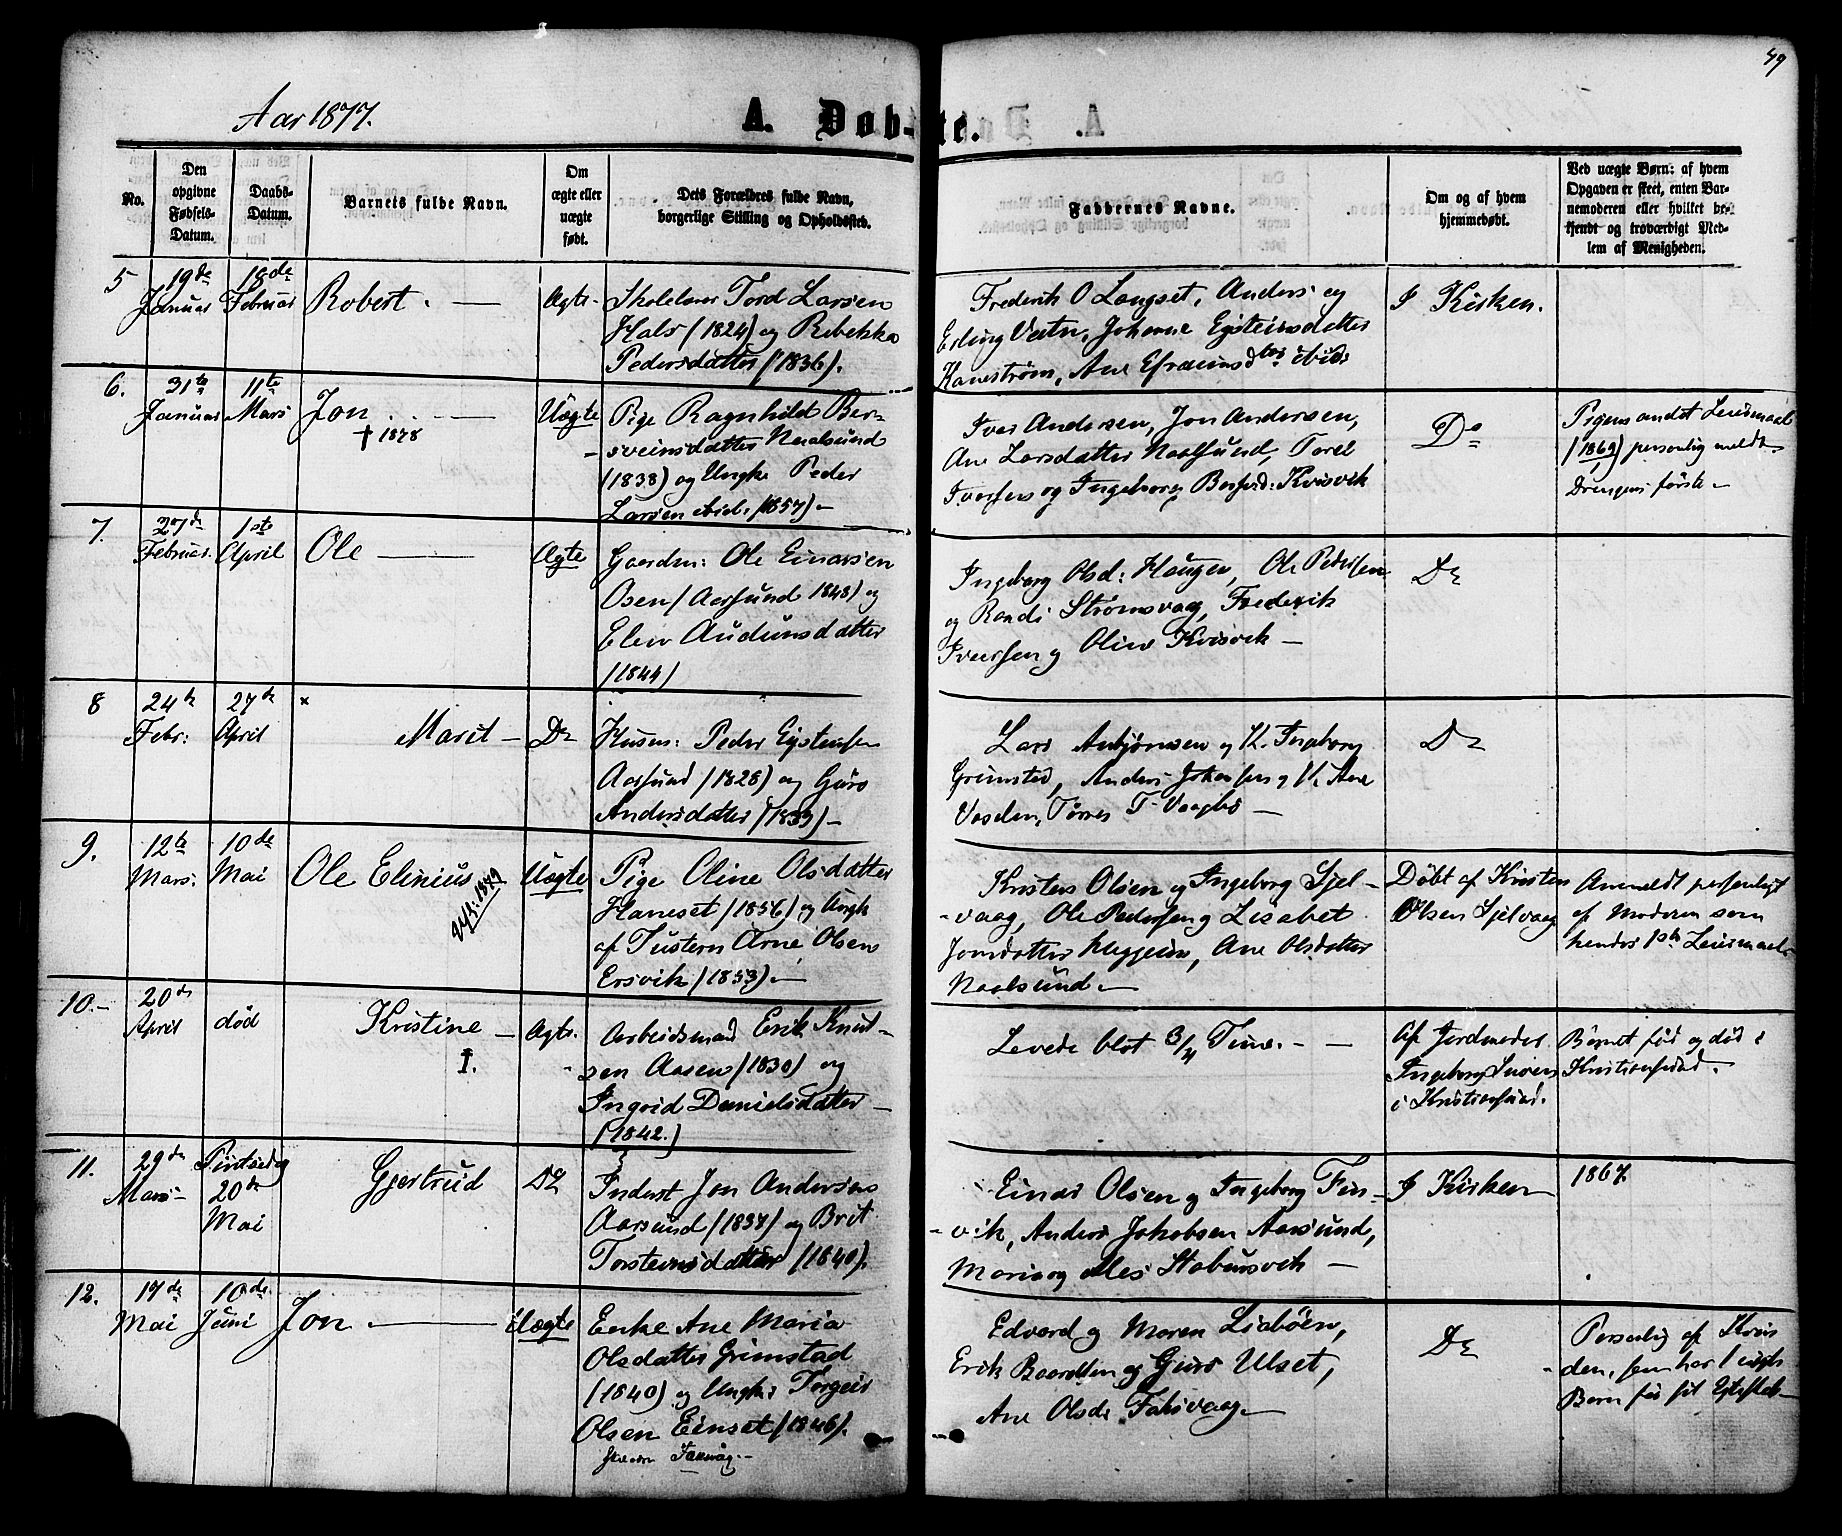 49
Aar 1877.
A. Døb-te.
No.
Den
opgivne
Fødsels-
Datum.
Daabs-
Datum.
Barnets fulde Navn.
Om
ægte eller
uægte
født.
Dets Forældres fulde Navn,
borgerlige Stilling og Opholdssted.
Faddernes Navne.
Om og af hvem
hjemmedøbt.
Ved uægte Børn: af hvem
Opgaven er skeet, enten Bar-
nemoderen eller hvilket be-
kjendt og troværdigt Med-
lem af Menigheden.
5
19de
Januar
18de
Februar
Robert.
Ægte.
Skolelærer Tord Larsen
Hals (1824) og Rebekka
Pedersdatter (1836).
Frederik O Langset, Anders og
Erling Vatn, Johanne Eysteinsdatter
Kanestrøm, Ane Efraimsd ibid:
I Kirken.
6.
31te
Januar
11te
Mars
Jon
† 1878
Uægte
Pige Ragnhild Ber-
sveinsdatter Naalsund
(1838) og Ungk Peder
Larsen ibid. (1857)
Iver Andersen, Jon Andersen,
Ane Larsdatter Naalsund, Torel
Iversen og Ingeborg Bersvd: Kvisvik
Do
Pigens andet Leiermaal
(1862) personlig meldt
Drengens første
7.
27de
Februar.
1ste
April
Ole
Ægte
Gaardm: Ole Einarsen
Osen (Aarsund 1848) og
Elen Audunsdatter
(1844)
Ingeborg Olsd: Haugen, Ole Pedersen
og Randi Strømsvaag, Frederik
Iversen og Oline Kvisvik
Do
8
24de
Febr:
27de
April
×
Marit
Do
Husm: Peder Eystensen
Aarsund (1828) og Guro
Andersdatter (1839)
Lars Anbjørnsen og K. Ingeborg
Grimstad, Anders Johansen og K. Ane
Vaslen, Torres T. Vaagbø
Do
9.
12te
Mars.
10de
Mai
Ole Elinius
Uægte
Pige Oline Olsdatter
Haneset (1856) og Ungk
af Tustern Arne Olsen
Ersvik (1853).
Kristen Olsen og Ingeborg Sjel-
-vaag, Ole Pedersen og Lisabet
Jonsdatter Heggeim, Ane Olsdatter
Naalsund.
Døbt af Kristen
Olsen Sjelvaag
Anmeldt personligt
af Moderen som
hendes 1ste Leiermaal
10.
20de
April
død
Kristine
†.
Ægte.
Arbeidsmand Erik Knut-
sen Aasen (1830) og
Ingrid Danielsdatter
(1842.)
Levede blot 3/4 Time.
Af Jordmoder
Ingeborg Iversen
i Kristiansund.
Barnet fød og død i
Kristiansund.
11.
29de
Mars
Pintsedag
20de
Mai
Gjertrud
Do
Inderst Jon Andersen
Aarsund (1837) og Brit
Torsteinsdatter (1840).
Einar Olsen og Ingeborg Fen-
-vik, Anders Jakobsen Aarsund,
Maria og Nils Stabursvik
I Kirken
1867.
12.
17de
Mai
10de
Juni
Jon
Uægte
Enke Ane Maria
Olsdatter Grimstad
(1840) og Ungk: Torgeir
Olsen Einset (1846).
Edvard og Maren Liabøen,
Erik Baardsen og Guro Ulset,
Ane Olsd: Faksvaag
Do
Personlig af Kvin
den, som har 1 uægte
Barn før sit Egteskab